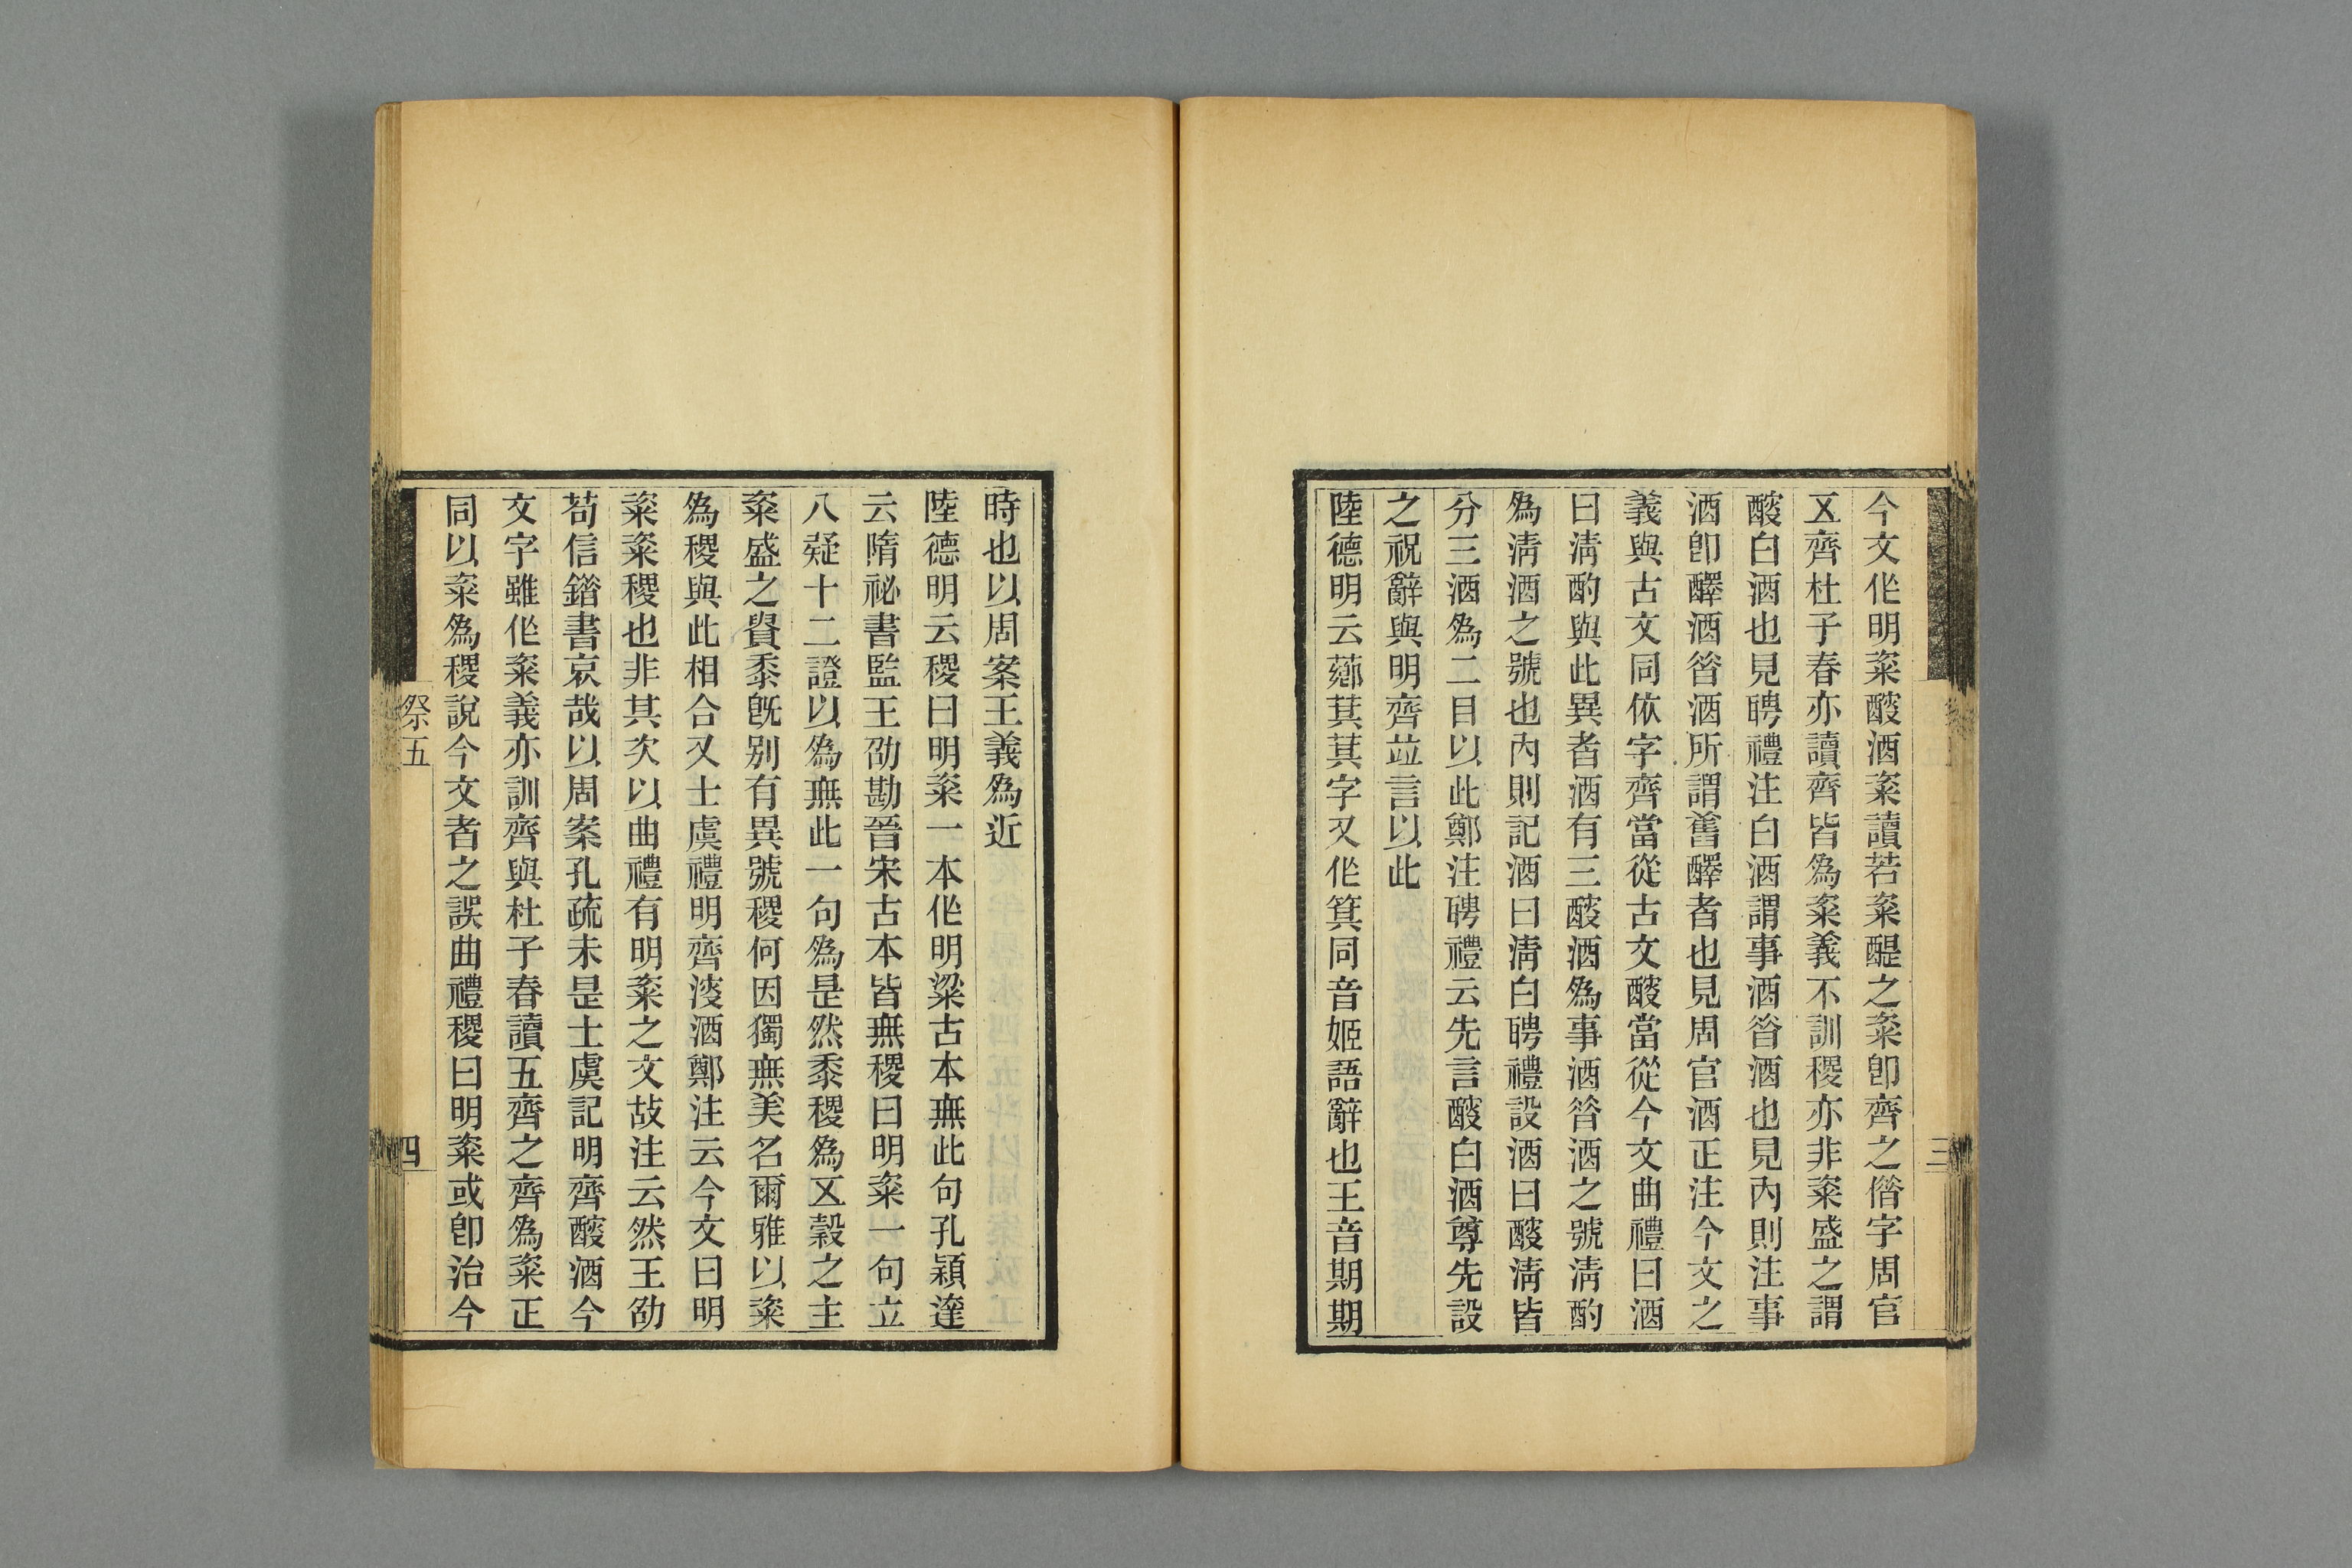 今文作明粢醙酒粢讀若粢醍之粢卽齊之偕字周官
五齊杜子春亦讀齊皆爲粢義不訓稷亦非粢盛之謂
醙白酒也見聘禮注白酒謂事酒昝酒也見內則注事
酒卽醳酒昝酒所謂舊醳者也見周官酒正注今文之
義與古文同依字齊當從古文醙當從今文曲禮曰酒
曰淸酌與此異者酒有三醙酒爲事酒昝酒之號淸酌
爲淸酒之號也內則記酒曰淸白聘禮設酒曰醙淸皆
分三酒爲二目以此鄭注聘禮云先言醙白酒尊先設
之祝辭與明齊竝言以此
陸德明云薌萁萁字又作箕同音姬語辭也王音期期
三
時也以周案王義爲近
陸德明云稷曰明粢一本作明粱古本無此句孔穎達
云隋祕書監王劭勘晉宋古本皆無稷曰明粢一句立
八疑十二證以爲無此一句爲是然黍稷爲五穀之主
粢盛之貴黍旣别有異號稷何因獨無美名爾雅以粢
爲稷與此相合又士虞禮明齊溲酒鄭注云今文曰明
粢粢稷也非其次以曲禮有明粢之文故注云然王劭
苟信鐕書哀哉以周案孔疏未是士虞記明齊醙酒今
文字雖作粢義亦訓齊與杜子春讀五齊之齊爲粢正
同以粢爲稷說今文者之誤曲禮稷曰明粢或卽治今
祭五
四